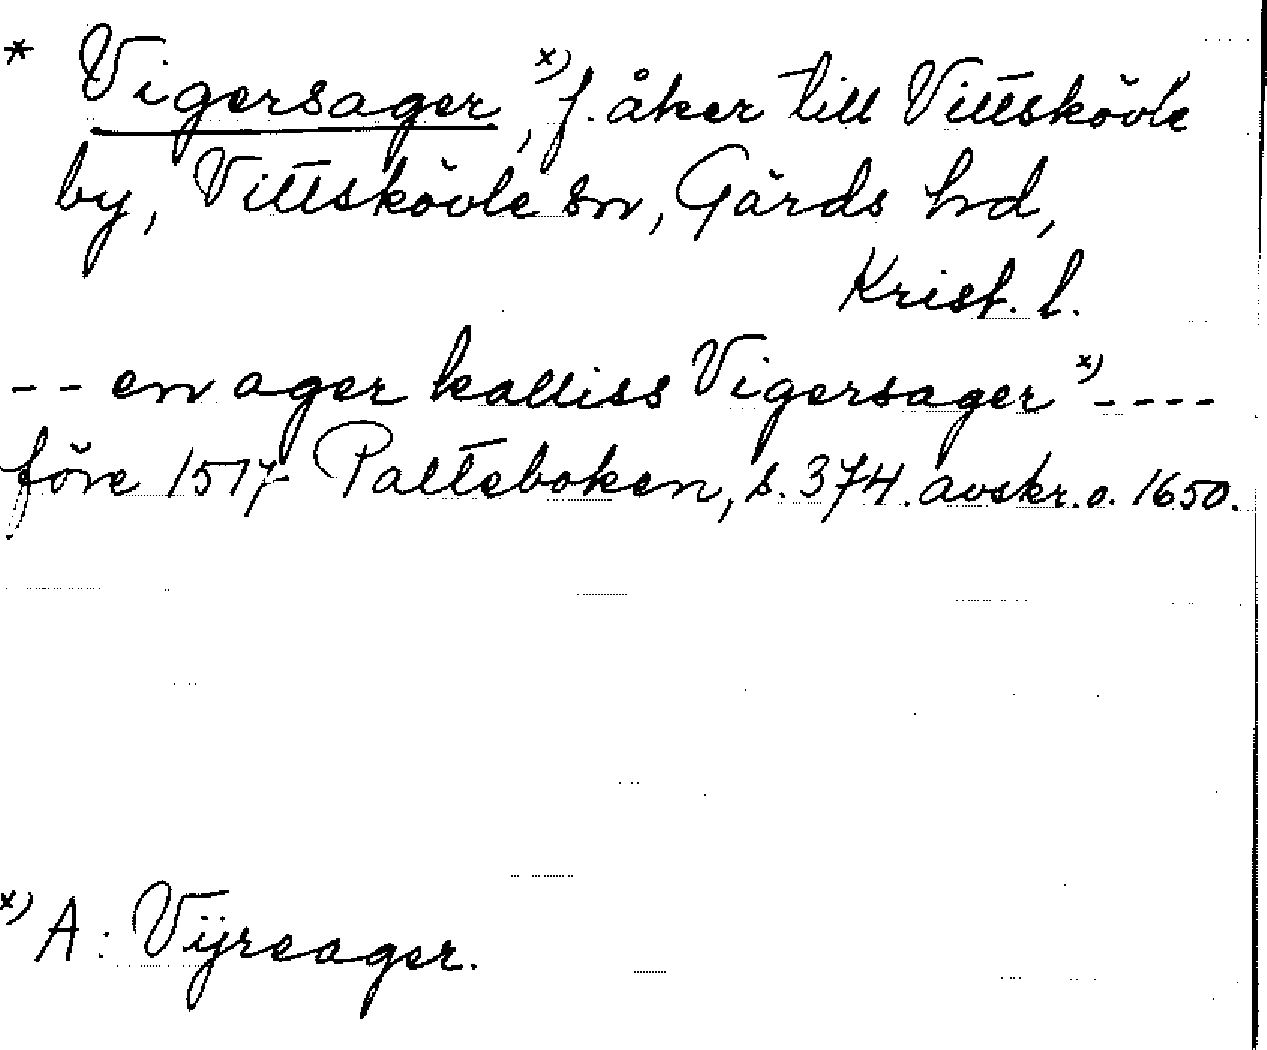 * Vigersager, x) f. åker till Vittskövle
by, Vittskövle sn, Gärds hd,
Krist. l.
- - en ager kalliss Vigersager x) - - - -
före 1517 Palteboken, s. 374. avskr. o. 1650.
x) A: Vijreager.